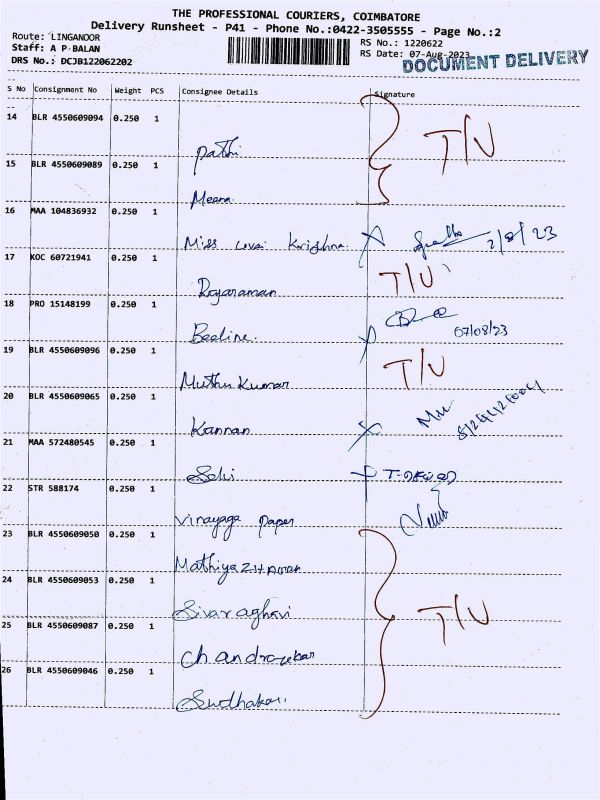 THE PROFESSIONAL COURIERS, COIMBATORE
Delivery Runsheet - P41 - Phone No.:0422-3505555 - Page No.:2
Route: LINGANOOR
RS No.: 1220622
Staff: A P BALAN
RS Date: 07-Aug-2023
DRS No.: DCJB122062202
DOCUMENT DELIVERY
S No Consignment No Weight PCS Consignee Details Signature
14 BLR 4550609094 0.250 1
Pathi
T/U
15 BLR 4550609089 0.250 1
Meena
16 MAA 104836932 0.250 1
Miss Krishna 2/8/23
17 KOC 60721941 0.250 1
Rajaraman T/U
18 PRO 15148199 0.250 1
Beeline 07/08/23
19 BLR 4550609096 0.250 1
Muthu Kumar T/U
20 BLR 4550609065 0.250 1
Kannan
21 MAA 572480545 0.250 1
Selvi
22 STR 588174 0.250 1
Vinayaga Paper
23 BLR 4550609050 0.250 1
Mathiyazhagan
24 BLR 4550609053 0.250 1
Sivaraghavi T/U
25 BLR 4550609087 0.250 1
Chandrasekar
26 BLR 4550609046 0.250 1
Sudhakar